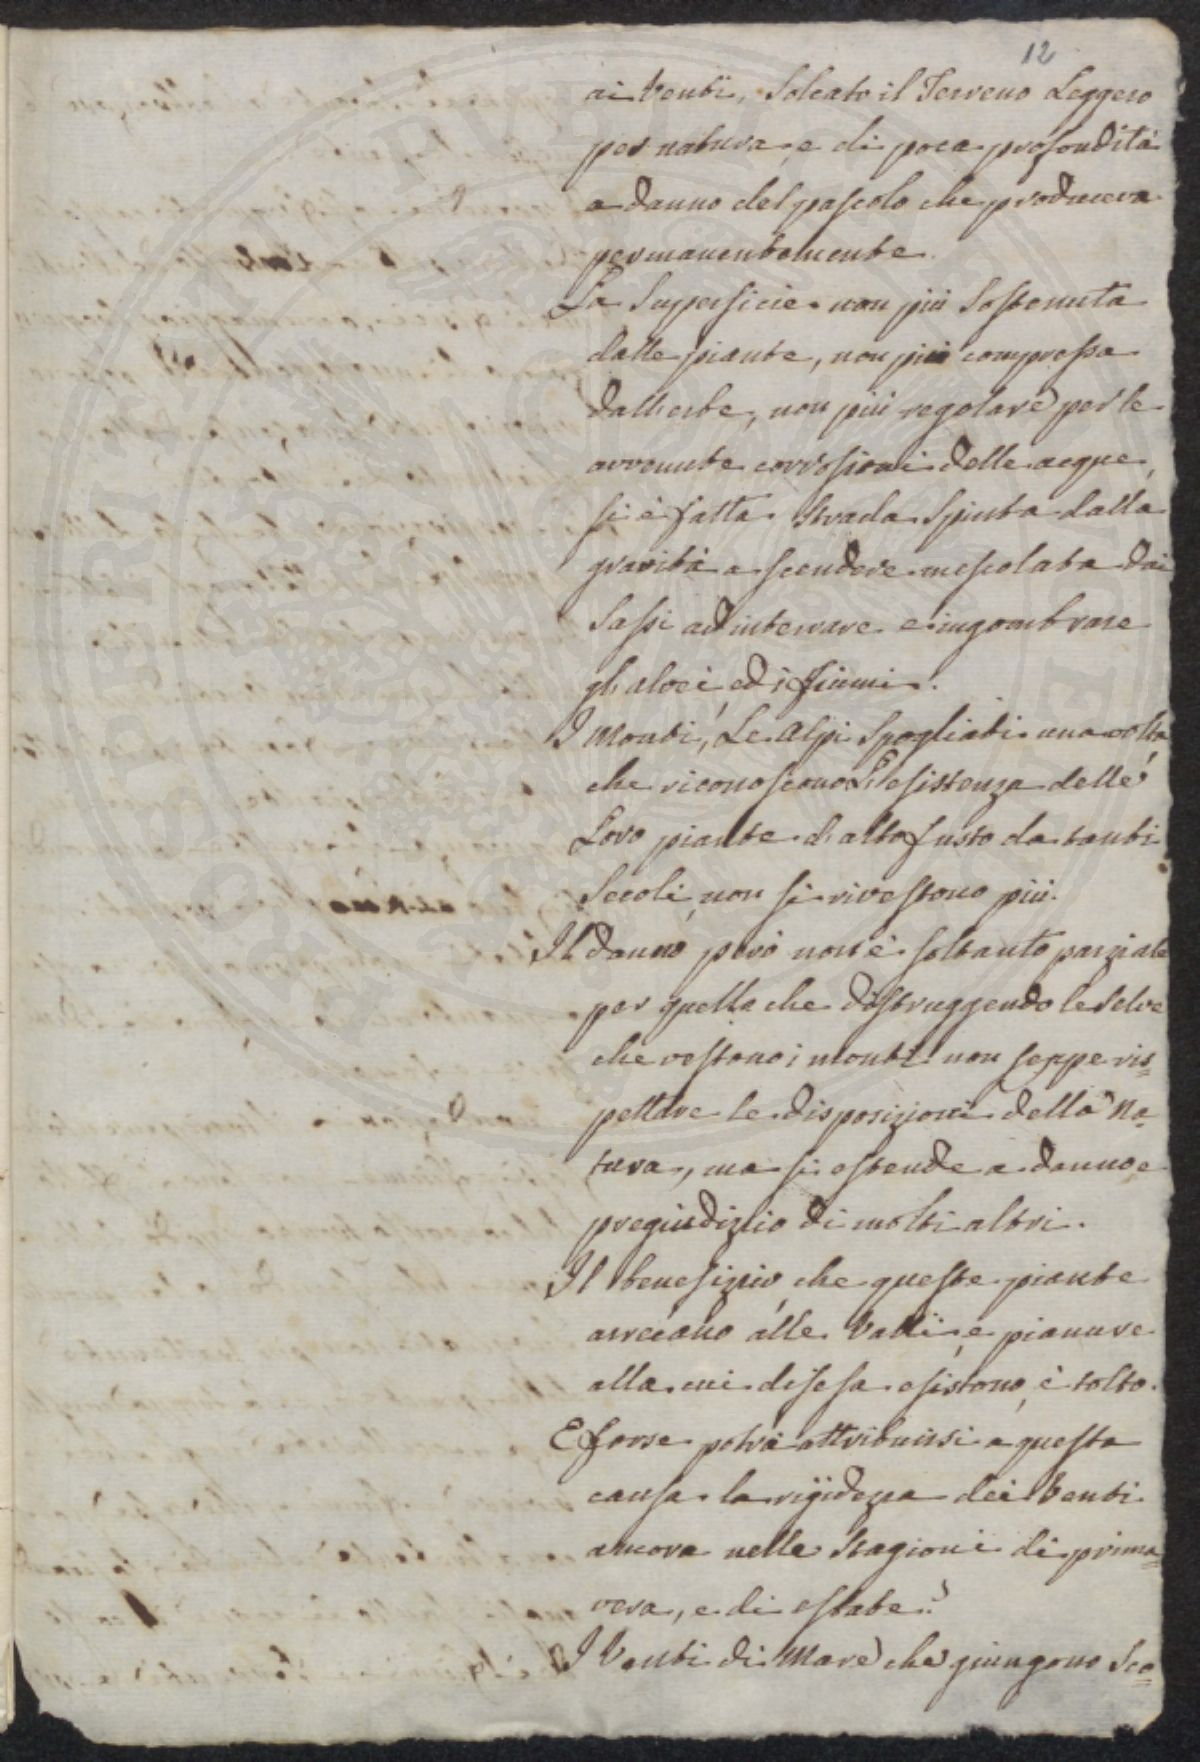 12
ai Venti, Solcato il Terreno Leggero
per natura, e di poca profondità
a danno del pascolo che produceva
permanentemente.
La Superficie non più Sostenuta
dalle piante, non più compressa
dall'erbe, non più regolare per le
avvenute corrosioni delle acque,
si è fatta Strada Spinta dalla
gravità a scendere mescolata dai
Sassi ad interrare e ingombrare
gli alvei, ed i fiumi.
I Monti, Le Alpi Spogliati una volta
che riconoscono L'esistenza delle
Loro piante d'alto fusto da tanti
Secoli, non si rivestono più.
Il danno però non è soltanto parziale
per quello che distruggendo le Selve
che vestono i monti non seppe ris=
pettare le disposizioni della Na=
tura, ma si estende a danno e
pregiudizio di molti altri.
Il benefizio, che queste piante
arrecano alle Valli, e pianure
alla cui difesa esistono, è tolto.
E forse potrà attribuirsi a questa
causa la rigidezza dei Venti
ancora nelle Stagioni di prima=
vera, e di estate.
I Venti di Mare che giungono Sco=